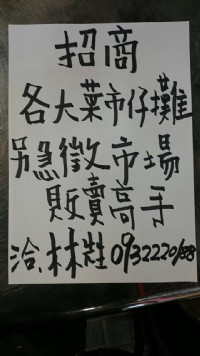 招商
各大菜市仔攤
另急徵市場
販賣高手
洽,林姓0932220188